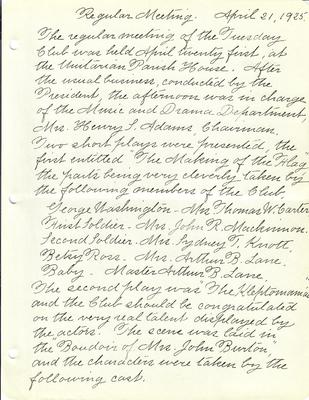 Regular Meeting. April 21, 1925.
The regular meeting of the Tuesday
Club was held April twenty first, at
the Unitarian Parish House. After
the usual business, conducted by the
President, the afternoon was in charge
of the Music and Drama Department,
Mrs. Henry S. Adams, Chairman.
Two short plays were presented, the
first entitled "The Making of the Flag"
the parts being very cleverly taken by
the following members of the Club
George Washington - Mrs. Thomas W. Carter
First Soldier - Mrs. John R. Mackinnon.
Second Soldier - Mrs. Sydney T. Knott.
Betsy Ross. Mrs. Arthur B. Lane.
Baby - Master Arthur B. Lane.
The second play was "The Kleptomaniac"
and the Club should be congratulated
on the very real talent displayed by
the actors. The scene was laid in
the "Boudoir of Mrs. John Burton",
and the characters were taken by the
following cast.